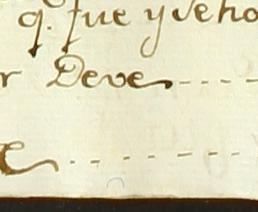 q. fue y de ho
r Deve - - - -
e - - - - - -